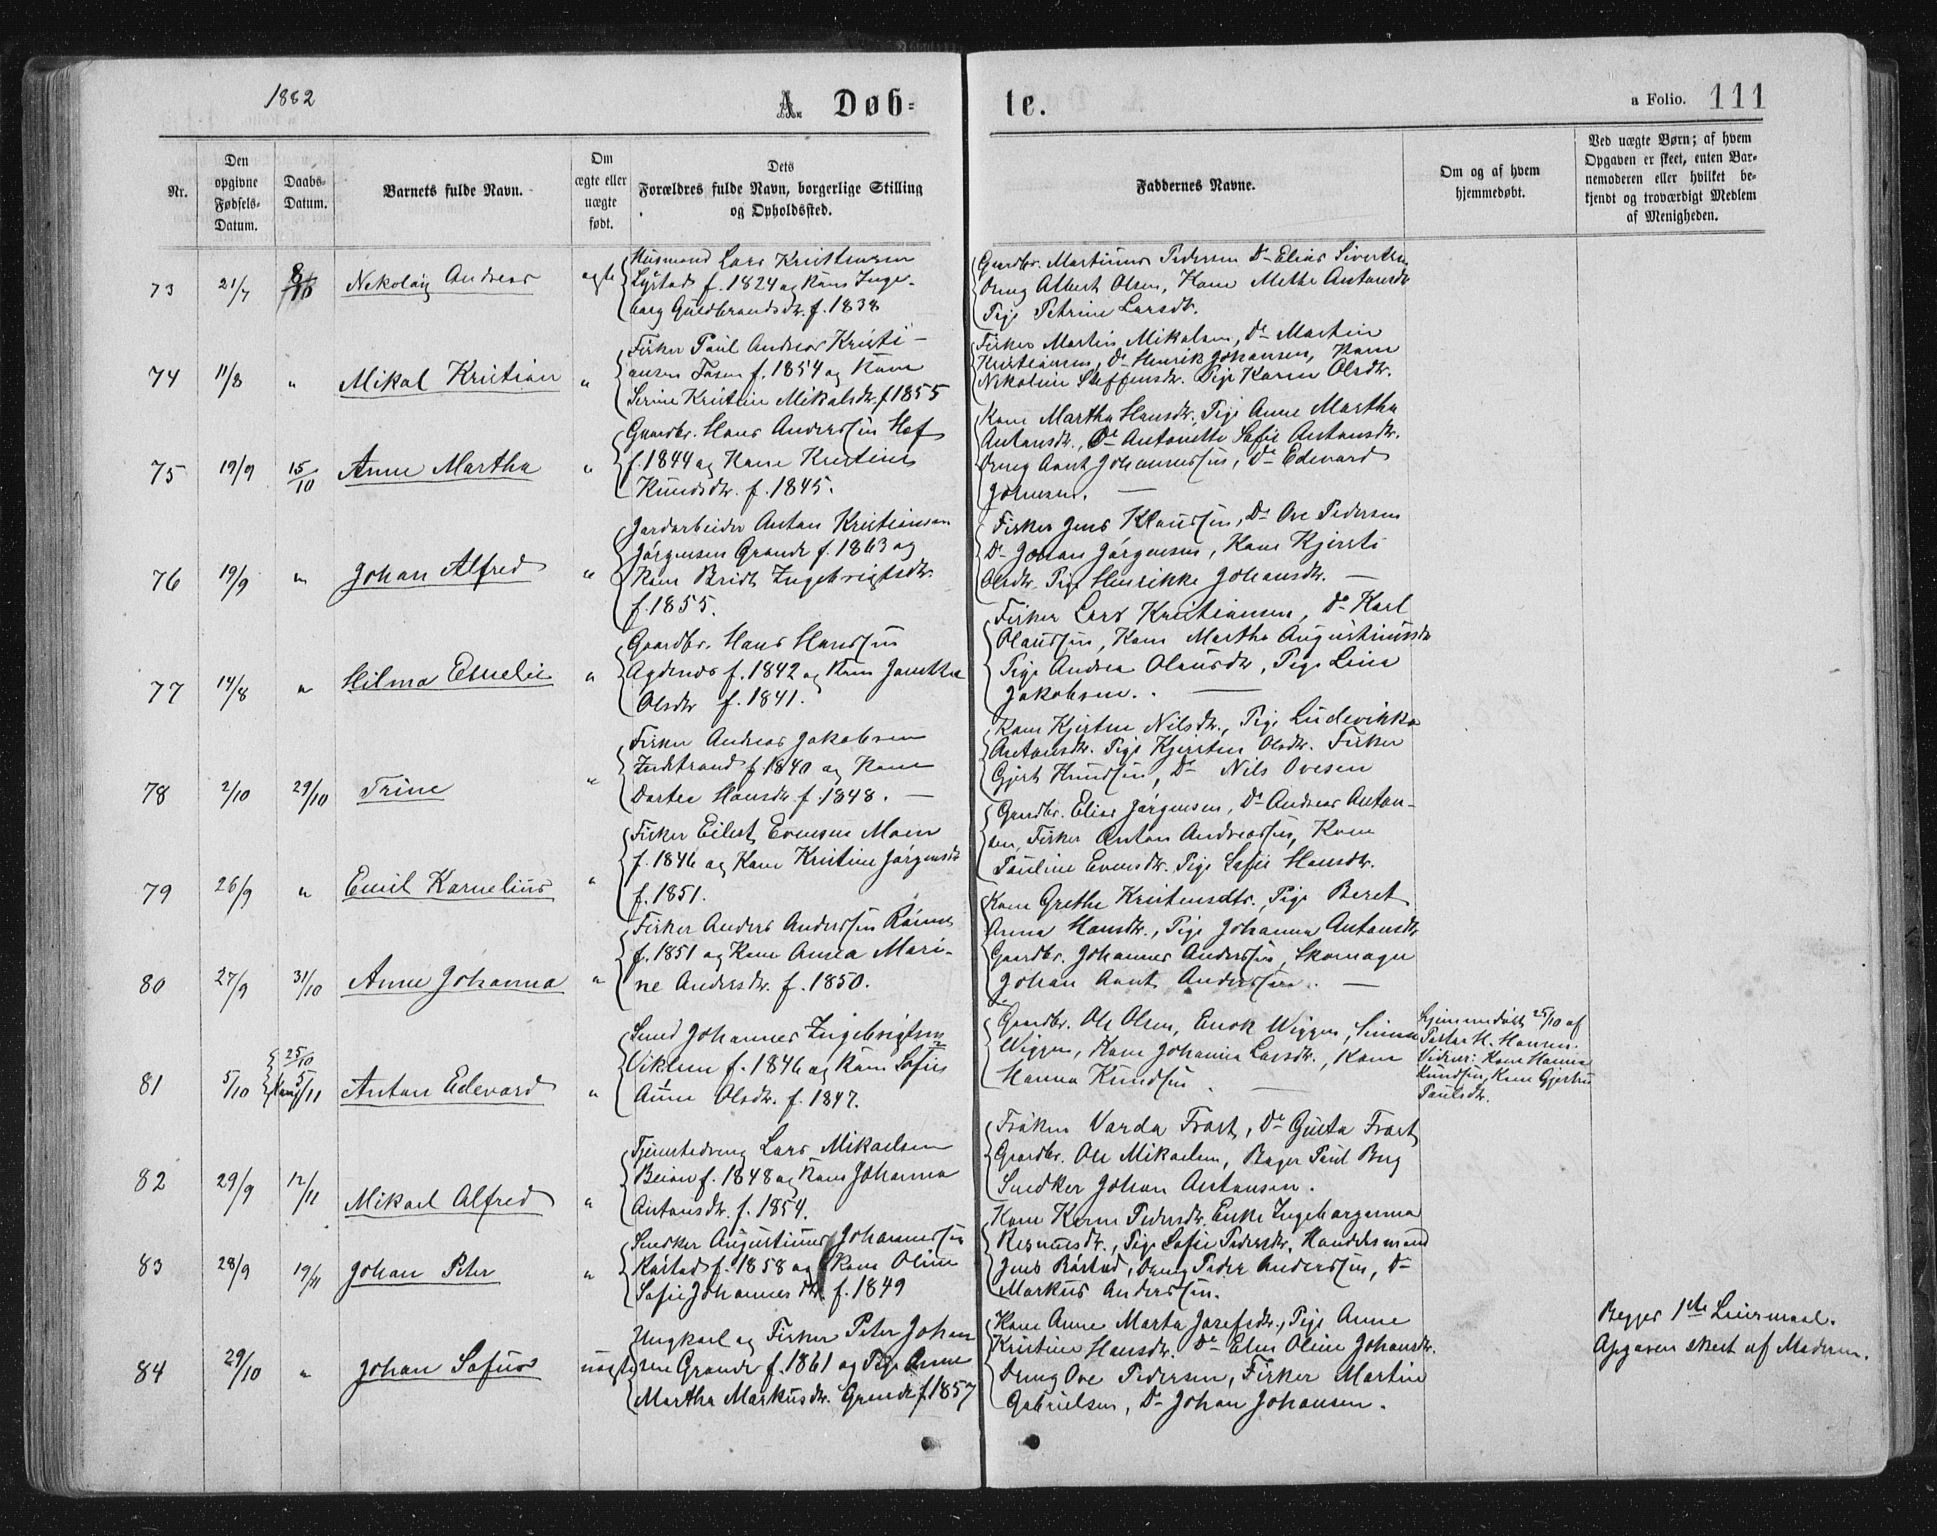 1882
A. Døb=
te.
a Folio. 111
Nr.
Den opgivne Fødsels-Datum.
Daabs-Datum.
Barnets fulde Navn.
Om ægte eller uægte født.
Dets Forældres fulde Navn, borgerlige Stilling og Opholdssted.
Faddernes Navne.
Om og af hvem hjemmedøbt.
Ved uægte Børn; af hvem Opgaven er skeet, enten Barnemoderen eller hvilket bekjendt og troværdigt Medlem af Menigheden.
73 21/7 8/10 Nikolay Andreas ægte
Husmand Lars Kristensen
f. 1824 og Kone Inge-
borg Guldbrandsdr. f. 1838
Gaardbr. Martinus Pedersen Do Elias Sivertsen
Dreng Albert Olsen, Kone Methe Antonsdr.
Pige Petrine Larsdr.
74 11/8 " Mikal Kristian "
Fisker Paul Andreas Kristi-
ansen f. 1854 og Kone
Serine Kristine Mikalsdr. f 1855
Fisker Martin Mikalsen, Do Martin
Kristiansen, Do Henrik Johansen, Kone
Nikoline Steffensdr. Pige Karen Olsdr.
75 19/9 15/10 Anne Martha "
Gaardbr. Hans Anderssen Hof
f. 1844 og Kone Kristine
Knudsdr. f. 1845.
Kone Martha Hansdr., Pige Anne Martha
Antonsdr., Do Antonette Sofie Antonsdr.
Dreng Arnt Johannessen, Do Edevard
76 19/9 " Johan Alfred "
Jordarbeider Anton Kristiansen
Jørgensen Grande f. 1863 og
Kone Brith Ingebrigtsdr.
f. 1855.
Fisker Jens Klaussen, Do Ove Pedersen
Do Johan Jørgensen, Kone Kjersti
Olsdr. Pige Henrikke Johansdr. —
77 14/8 " Hilma Emelie "
Gaardbr. Hans Hanssen
Agdenes f. 1842 og Kone
Olsdr f. 1841.
Fisker Lars Kristiansen, Do Karl
Olaussen, Kone Martha Augustinusdr
Pige Andrea Olausdr, Pige Lina
Jakobsen. —
78 2/10 29/10 Trine "
Fisker Andreas Jakobsen
Indstrand f. 1840 og Kone
Dortea Hansdr. f. 1848. —
Kone Kjersten Nilsdr., Pige Ludevikka
Antonsdr. Pige Kjersten Olsdr. Fisker
Gjert Knudsen, Do Nils Ovesen
79 26/9 " Emil Kornelius "
Fisker Eilert Evensen Moen
f. 1846 og Kone Kristine Jørgensdr
f. 1851.
Gaardbr. Elias Jørgensen, Do Andreas Anton-
sen, Fisker Anton Andreassen, Kone
Pauline Evensdr. Pige Sofie Hansdr.
80 27/9 31/10 Anne Johanna "
Fisker Anders Anderssen
f. 1851 og Kone Anna Mari-
ne Andersdr. f. 1850.
Kone Grethe Kristensdtr., Pige Beret
Anna Hansdr., Pige Johanna Antonsdr
Gaardbr. Johannes Anderssen, Skomager
Johan Arnt Anderssen. —
81 5/10 25/10 5/11 Anton Edevard "
Smed Johannes Ingebrigtsen
Viklem f. 1846 og Kone Sofie
Anne Olsdr. f. 1847.
Gaardbr. Ole Olsen, Enok Wiggen,
Wiggen, Kone Johanna Larsdr., Kone
Hanna Knudsen. —
Hjemmedøbt 25/10 af
Pastor H. Hansen.
Vidner: Kone Hanna
Knudsen, Kone Gjertru
Paulsdr.
82 29/9 12/11 Mikael Alfred "
Tjenestedreng Lars Mikaelsen
Beian f. 1848 og Kone Johanna
Antonsdr. f. 1854.
Frøken Varda Frost, Do Gusta Frost
Gaardbr. Ole Mikaelsen, Bager Paul Berg
Snedker Johan Antonsen.
83 28/9 19/11 Johan Peter "
Snedker Augustinus Johannessen
f. 1858 og Kone Oline
Sofie Johannesdr. f. 1849
Kone Karen Pedersdr. Enke Ingeborganna
Rasmusdr., Pige Sofie Pedersdr. Handelsmand
Jens Børstad, Dreng Peder Anderssen, Do
Markus Anderssen.
84 29/10 " Johan Sofus uægte
Ungkarl og Fisker Peter Johan
sen Grande f. 1861 og Pige Anne
Martha Markusdr. Grande f. 1857
Kone Anne Marta Josefsdr., Pige Anne
Kristine Hansdr. Do Elen Oline Johansdr.
Dreng Ove Pedersen, Fisker Martin
Gabrielsen, Do Johan Johansen.
Begges 1ste Leiermaal.
Opgaven skeet af Moderen.